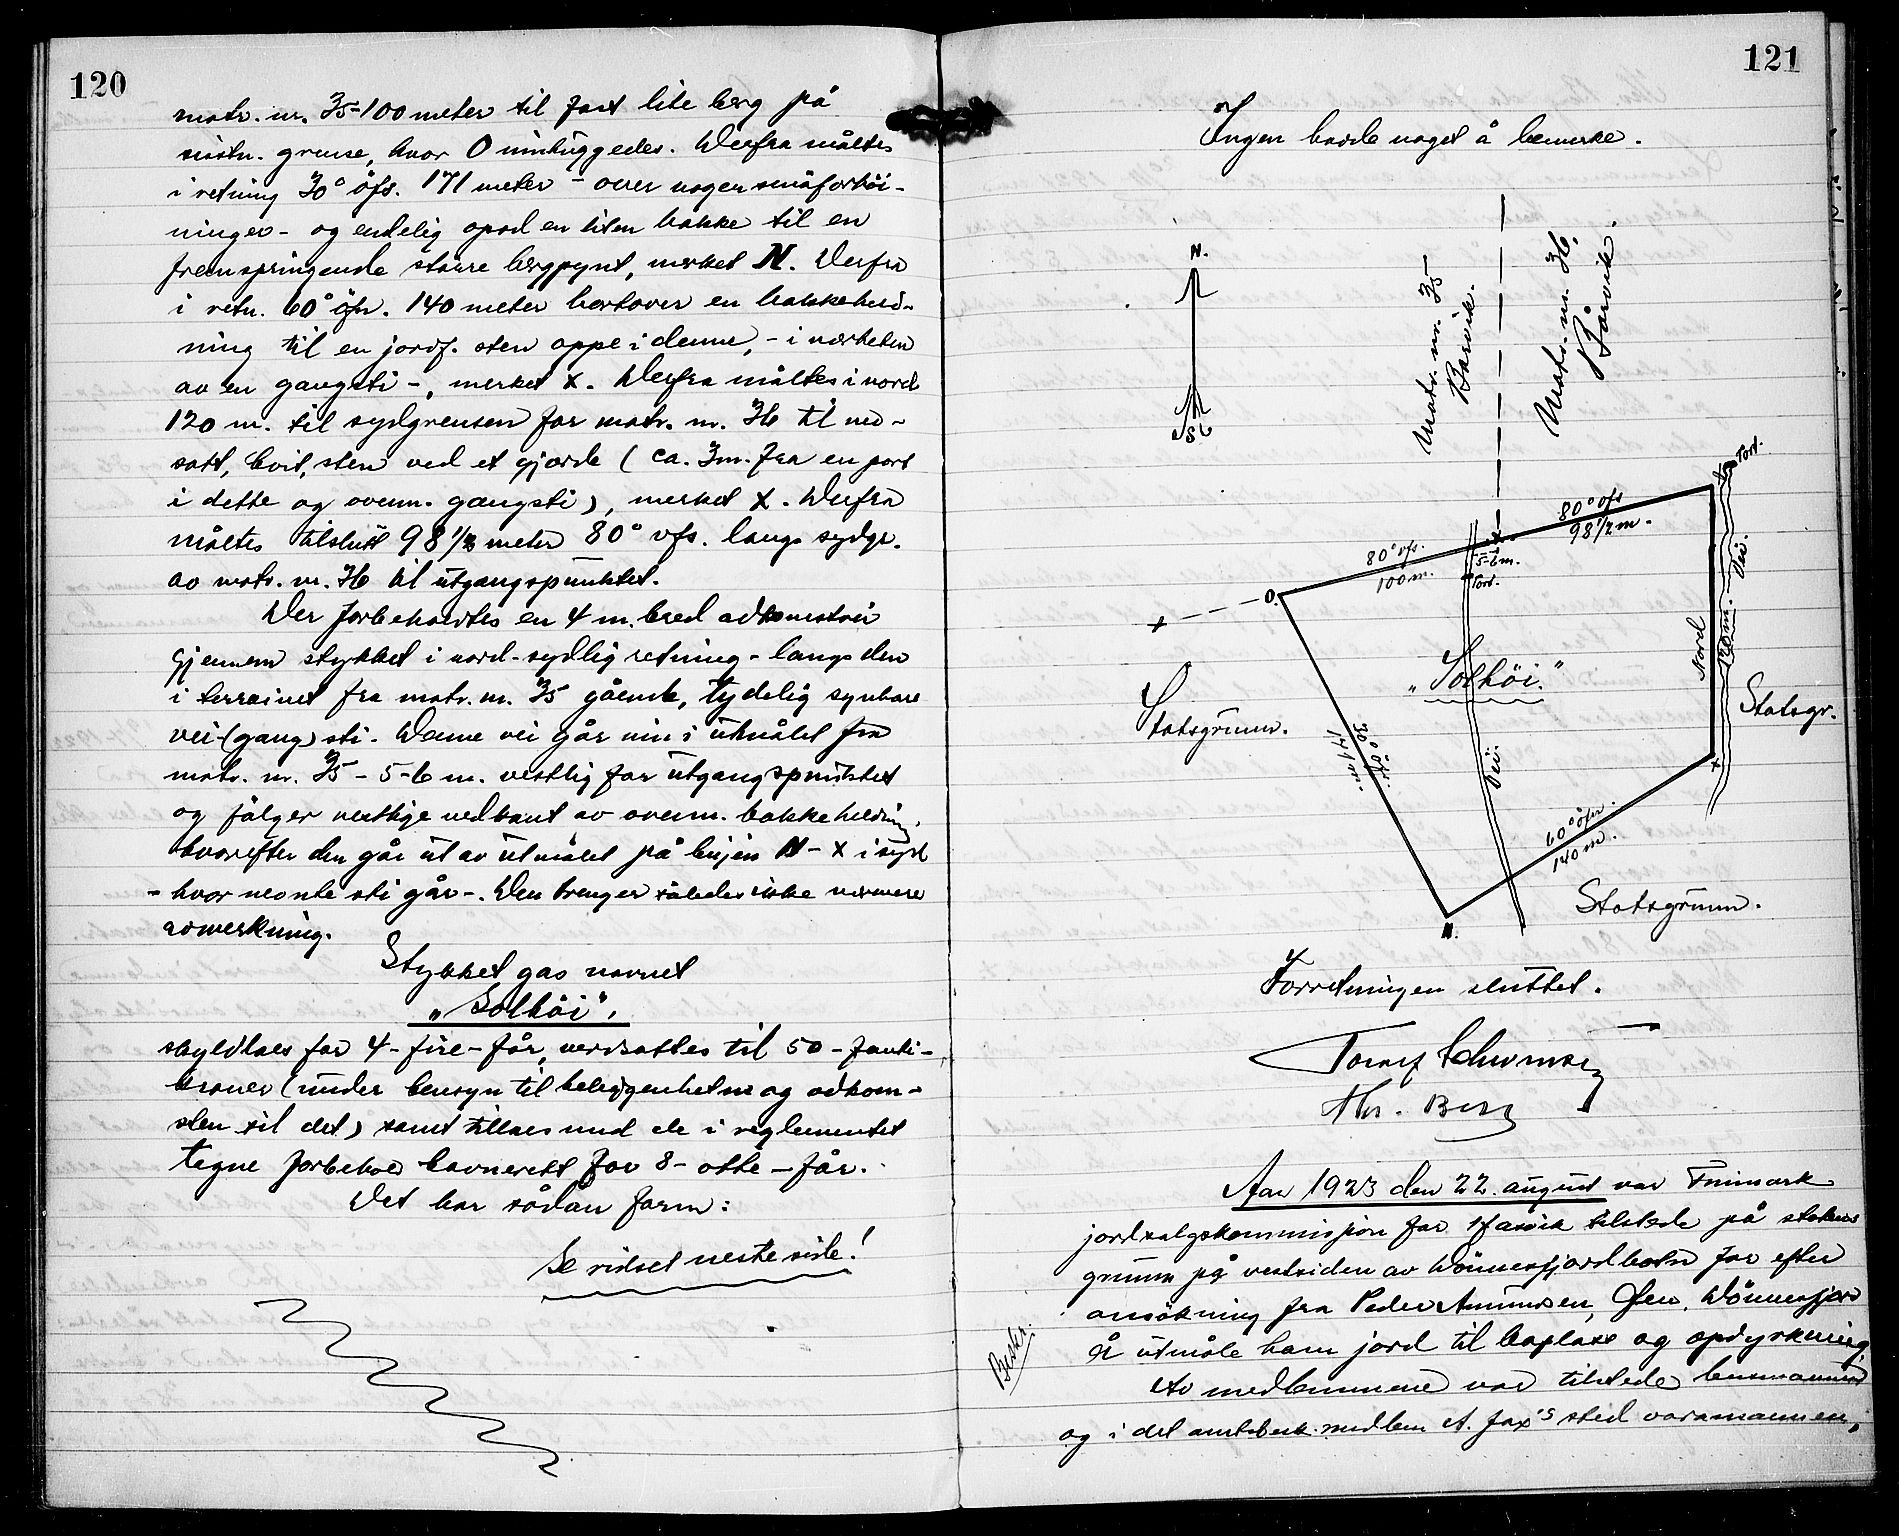 120
matr. nr. 35 - 100 meter til fast lite berg på
nästn. grense, hvor O innhuggedes. Derfra måltes
i retning 30° öfs. 171 meter - over nogen småforhöi-
ninger - og endelig opad en liten bakke til en
fremspringende större bergpynt, merket N. Derfra
i retn. 60° öfn. 140 meter bortover en bakkehæld-
ning til en jordf. sten oppe i denne, - i nærheten
av en gangsti -, merket x. Derfra måltes i nord
120 m. til sydgrensen for matr. nr. 36 til ned-
satt, hvit, sten ved et gjærde ( ca. 3 m. fra en port
i dette og ovenn. gangsti ), merket x. Derfra
måltes tilslutt 98 1/2 meter 80° vfs. langs sydgr.
av matr. nr. 36 til utgangspunktet.
Der forbeholdtes en 4 m. bred adkomstvei
gjennem stykket i nord-sydlig retning - langs den
i terrainet fra matr. nr. 35 gående, tydelig synbare
vei-(gang) sti. Denne vei går inn i utmålet fra
matr. nr. 35 - 5-6 m. vestlig for utgangspunktet
og fölger vestlige vedkant av ovenn. bakkehelding,
hvorefter den går ut av utmålet på linjen N - x i syd
- hvor nevnte sti går -. Den trenger således ikke nærmere
avmerkning.
Stykket gas navnet
„Solhöi".
skyldlaes for 4 - fire - får, verdsattes til 50 - femti -
kroner (under hensyn til beliggenheten og adkom-
sten til det) samt tillaes med de i reglementet
tegne forbehold havnerett for 8 - otte - får.
Det har sådan form:
Se risset neste side!
121
Ingen hadde noget å bemerke.
N.
S
Matr. nr. 35
Barvik.
Matr. nr. 36.
Bårvik.
Port.
80° vfs
98 1/2 m.
80° vfs.
100 m.
5-6 m.
Port.
O.
Vei.
Nord
120 m.
„Solhöi."
Statsgrunn.
Statsgr.
30° öfs.
171 m.
Vei.
60° öfn.
140 m.
N.
Statsgrunn.
Forretningen sluttet.
Chr. Berg
Aar 1923 den 22. august var Finmark
jordsalgskommisjon for tilstede på statens
grunn på vestsiden av Dönnesfjordbotn for efter
ansökning fra Peder Amundsen, Öen, Dönnesfjord
å utmåle ham jord til boplass og opdyrkning.
Beskr.
Av medlemmene var tilstede lensmannen
og i det amtsbesk. medlem A. Fax's sted varamannen,